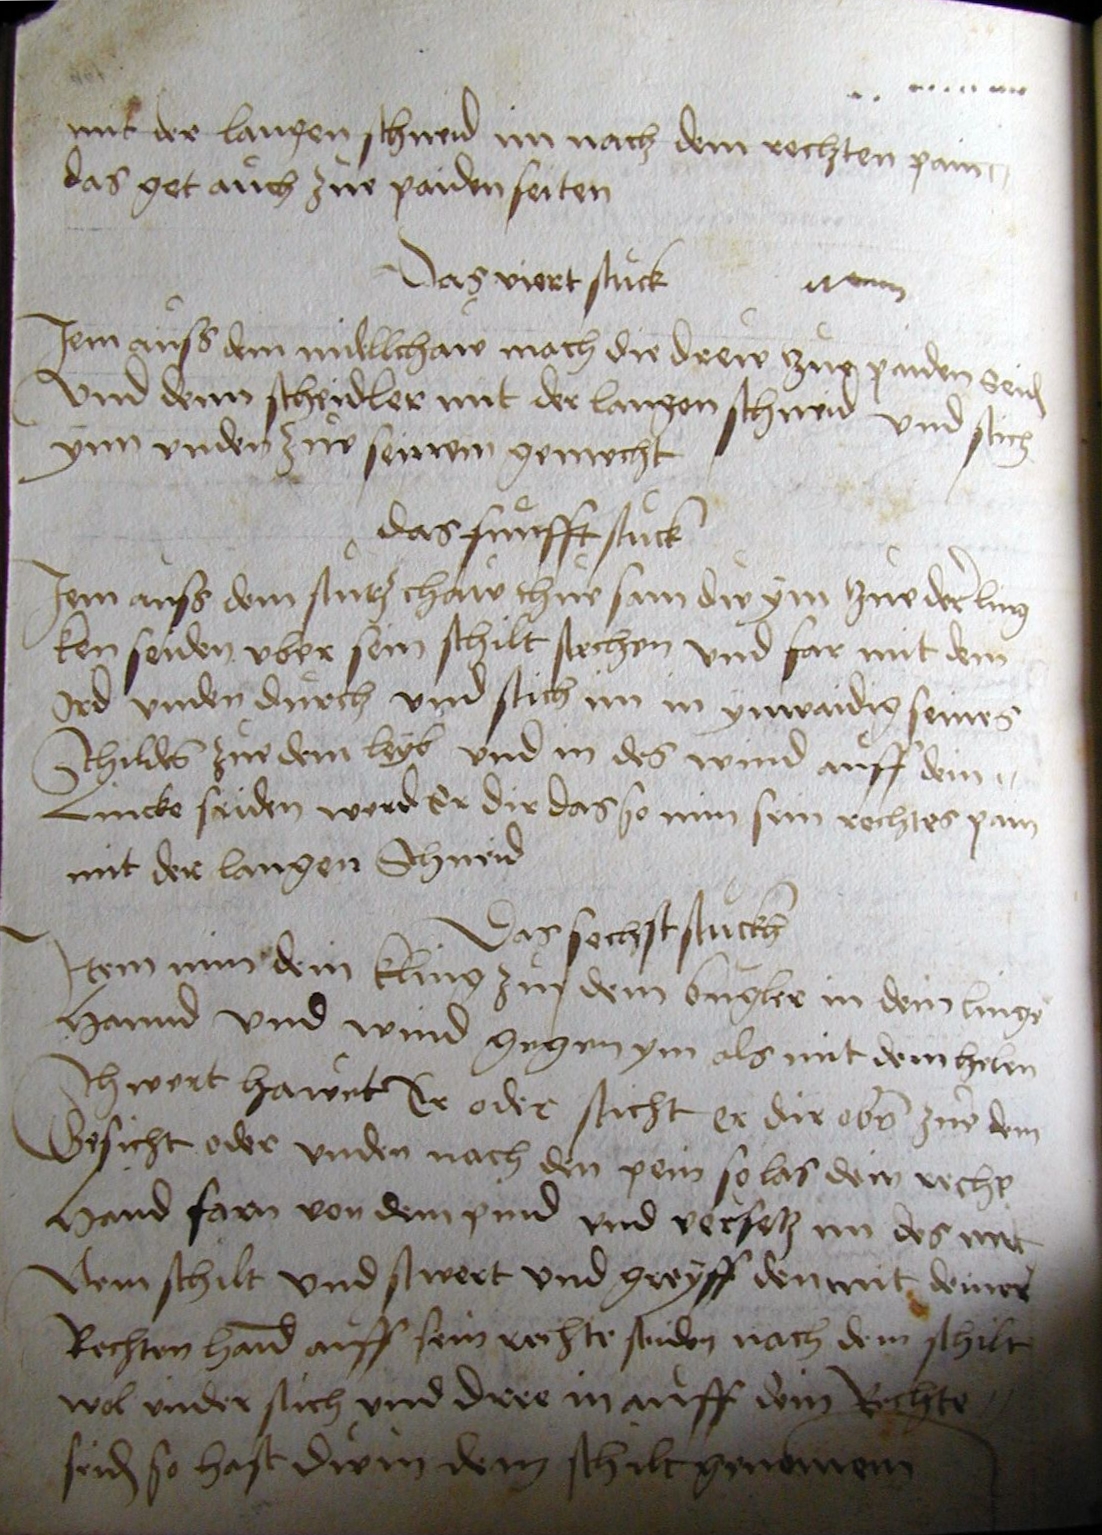 mit der langen schneid im nach dem rechten pain
das get aůch zůe paiden seiten
Das viert stůck
Jtem aůss dem mittellhaw mach die drew zůe paiden seiden
Vnd denn scheidler mit der langen schneid vnd stich
ynn vnden zůe seinem gemecht
das fůnfft stůck
Jtem aůss dem stůrtz chaw thůe sam dw ym zůe der ling
ken seiden vber sein schilt stechen vnd far mit dem
Ord vnden důrch vnd stich im in ynwaidig seines
Schildes zůe dem leyb vnd in des wind aůff dein
Lincke seiden werd Er dir das so nim sein rechtes pain
mit der langen Schneid
Das sechst stůckh
Jtem nim dein kling zůe dem bůgler in dein linge
Hannd vnd wind gegen ym als mit dem halben
Schwert hawet Er oder sticht er dir oben zůe dem
Gesicht oder vnden nach den pein so las dein recht
Hand farn von dem pind vnd versetz im des mit
Dem schilt vnd swert vnd greyff denn mit deiner
Rechten hand aůff sein rechte seiden nach dem schilt
wol vnder sich vnd dree in aůff dein Rechte
seiden so hast dw im den schilt genomen